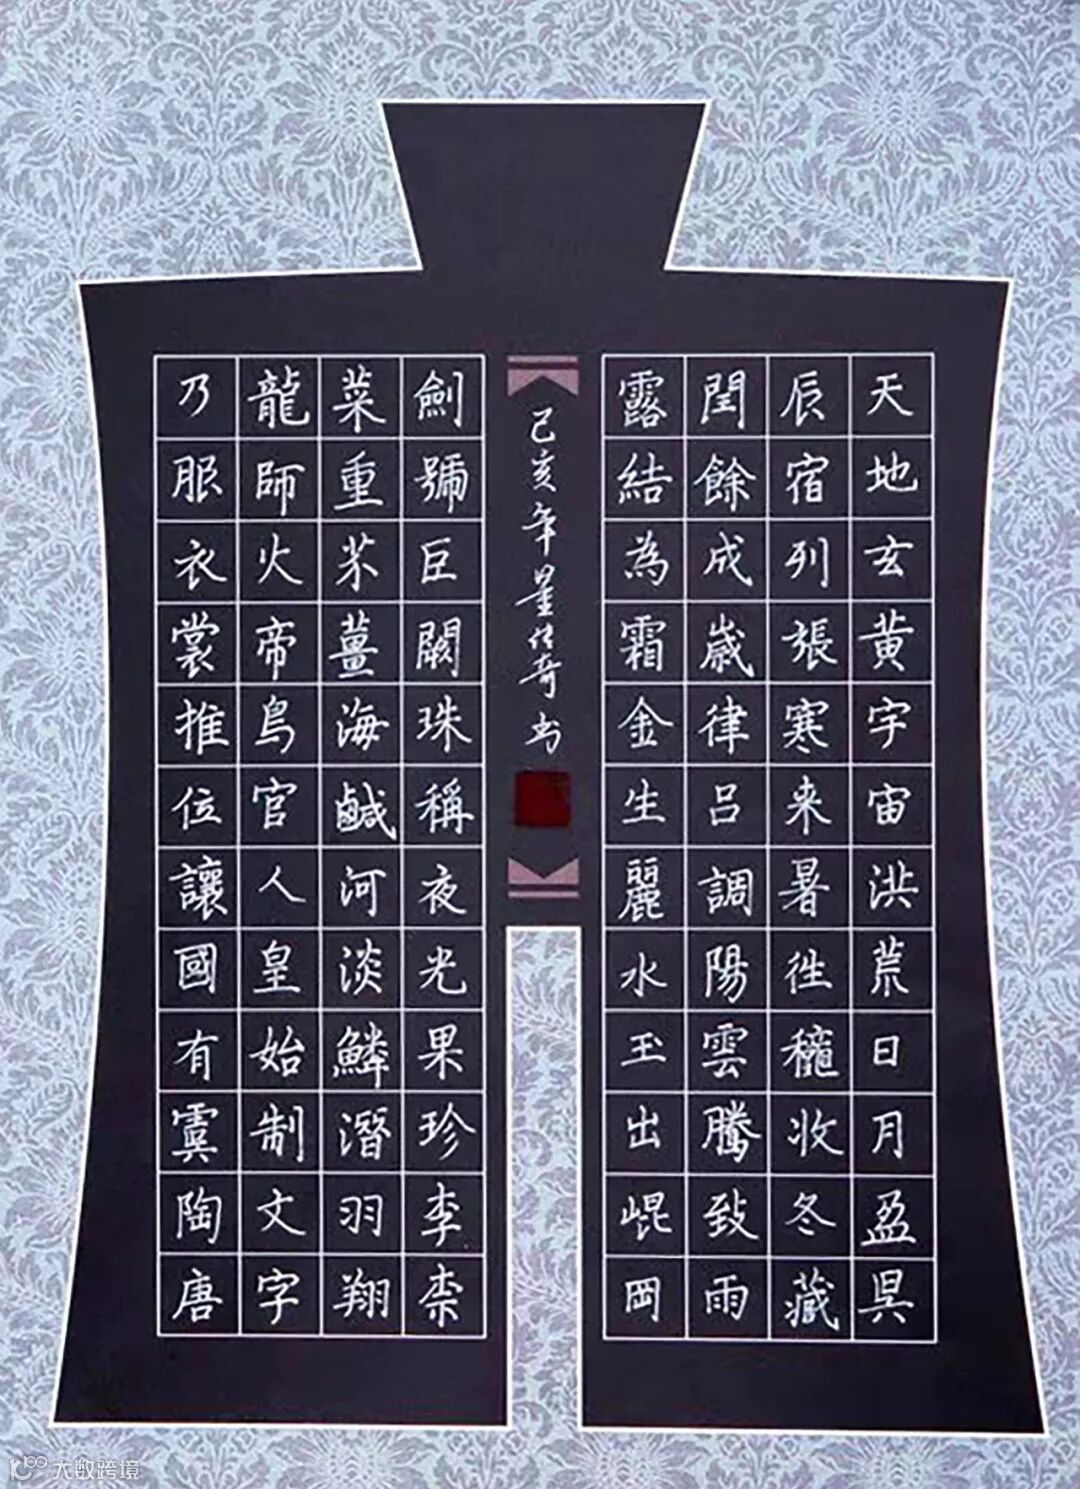 天地玄黄宇宙洪荒日月盈昃
辰宿列張寒来暑徃穐收冬藏
閏餘成歲律吕調陽雲騰致雨
露結為霜金生麗水玉出崐岡
己亥年传奇书
劍號巨闕珠稱夜光果珍李柰
菜重芥薑海鹹河淡鱗潛羽翔
龍師火帝鳥官人皇始制文字
乃服衣裳推位讓國有虞陶唐
大数跨境